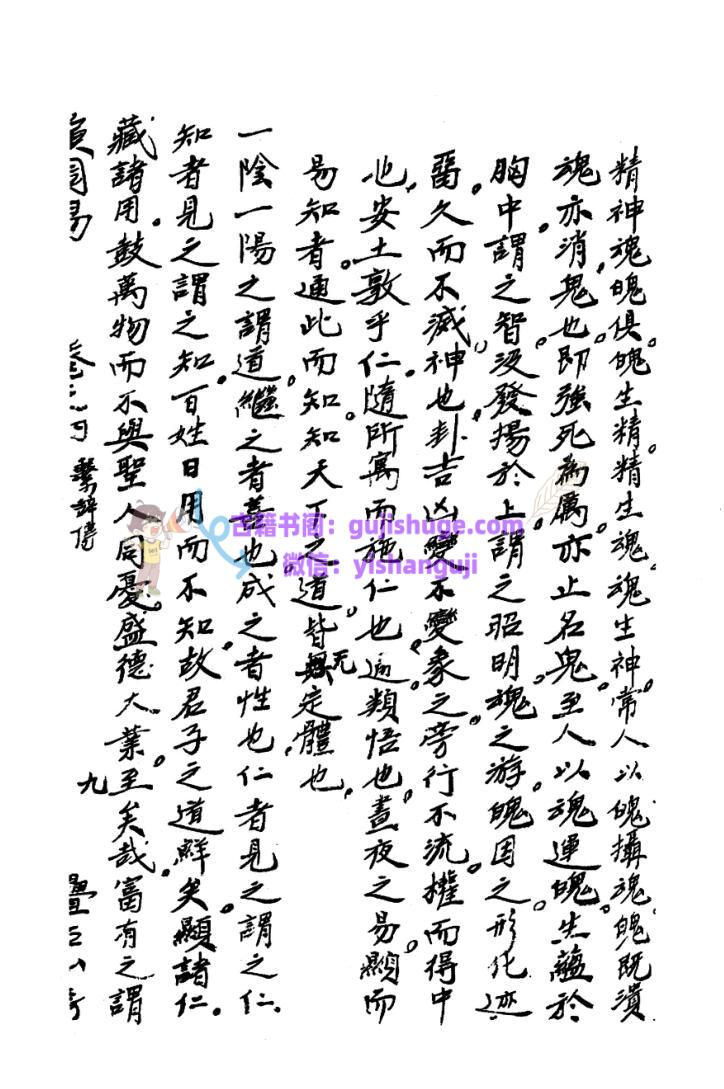 精神魂魄俱。魄生精。精生魂。魂生神。常人以魄攝魂。魄既潰
魂亦消鬼也。即強死為厲。亦止名鬼。至人以魂運魄。生蘊於
胸中。謂之智。沒發揚於上。謂之昭明。魂之游。魄固之。形化迹
留。久而不滅。神也。卦吉凶。變不變。象之。旁行不流。權而得中
也。安土敦乎仁。隨所寓而施仁也。通類悟也。晝夜之易。顯而
易知者。通此而知。知天下之道。皆无定體也。
一陰一陽之謂道。繼之者善也。成之者性也。仁者見之謂之仁。
知者見之謂之知。百姓日用而不知。故君子之道鮮矣。顯諸仁。
藏諸用。鼓萬物而不與聖人同憂。盛德大業。至矣哉。富有之謂
繫辭傳
九
古籍书阁：gujishuge.com
微信：yishanguji